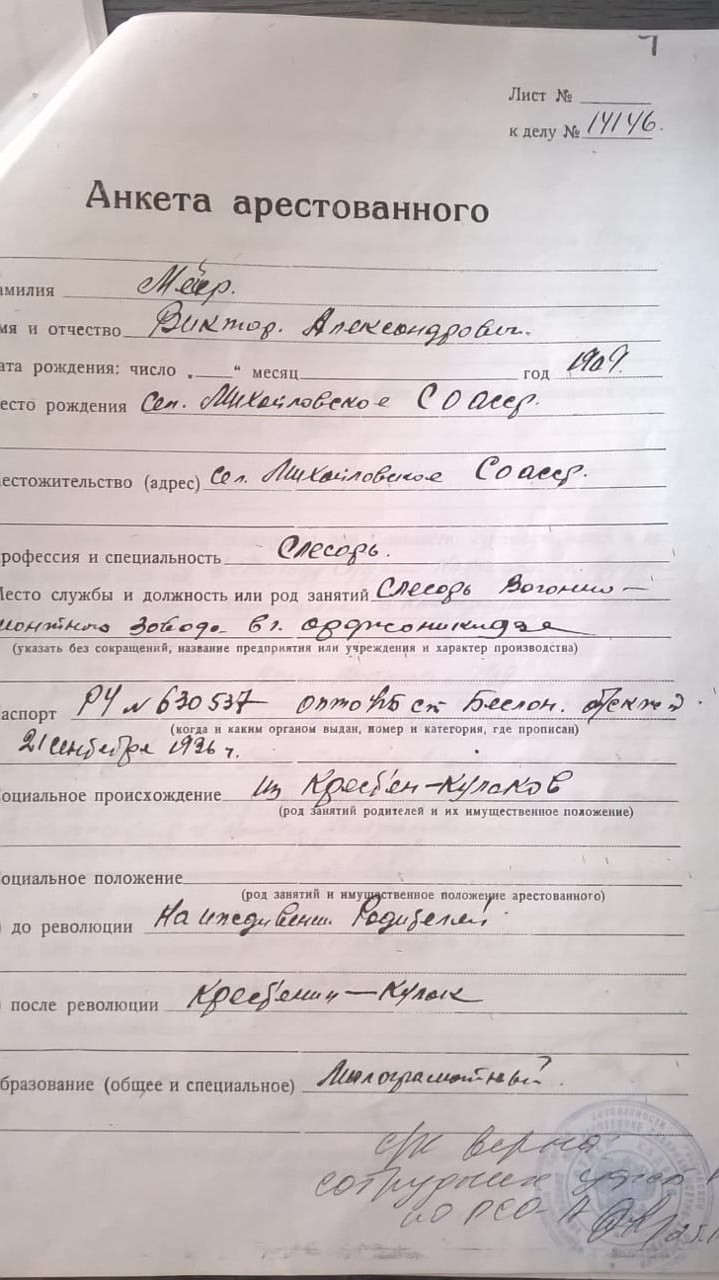 Лист №
к делу № 14146.
Анкета арестованного
амилия Меер.
мя и отчество Виктор. Александрович.
ата рождения: число „ “ месяц год 1909.
есто рождения Сел. Михайловское СОАССР.
естожительство (адрес) Сел. Михайловское СОАССР.
рофессия и специальность Слесарь.
Место службы и должность или род занятий Слесарь Вагоно-
монтного Завода в г. Орджоникидзе
(указать без сокращений, название предприятия или учреждения и характер производства)
аспорт РЧ № 630537 ст Беслан.
(когда и каким органом выдан, номер и категория, где прописан)
21 сентября 1936 г.
оциальное происхождение из Крестьян-Кулаков
(род занятий родителей и их имущественное положение)
оциальное положение
(род занятий и имущественное положение арестованного)
) до революции На иждивении. Родителей.
) после революции Крестьянин-Кулак
бразование (общее и специальное) Малограмотный.
с/к верна
сотрудник
по РСО-А